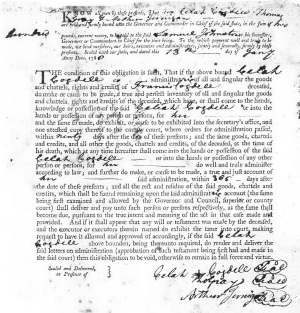 KNOW all men by these presents, That we Celah Cogdell Thomas
and firmly bound unto the Governor and Commander in Chief of the said State, in the sum of five
hundred pounds, current money, to be paid to the said Samuel Johnston
Governor or Commander in Chief for the time being. To the which payment well and truly to be
made, we bind ourselves, our heirs, executors and administrators, jointly and severally, firmly by these
presents. Sealed with our seals, and dated this 13 day of
Anno Dom. 17
THE condition of this obligation is such, That if the above bound Celah
Cogdell administrator of all and singular the goods
and chattels, rights and credits of Francis Cogdell deceased,
do make or cause to be made, a true and perfect inventory of all and singular the goods
and chattels, rights and credits of the deceased, which have, or shall come to the hands,
knowledge or possession of the said Celah Cogdell or into the
hands or possession of any person or persons, for
the same so made, do exhibit, or cause to be exhibited into the secretary's office, and
one attested copy thereof to the county court, where orders for administration passed,
within ninety days after the date of these presents; and the same goods, chattels
and credits, and all other the goods, chattels and credits, of the deceased, at the time of
his death, which at any time hereafter shall come into the hands or possession of the said
Celah Cogdell or into the hands or possession of any other
person or persons, for do well and truly administer
according to law; and further do make, or cause to be made, a true and just account of
said administration, within 365 days after
the date of these presents; and all the rest and residue of the said goods, chattels and
credits, which shall be found remaining upon the said administrator's account (the same
being first examined and allowed by the Governor and Council, superior or county
court) shall deliver and pay unto such person or persons respectively, as the same shall
become due, pursuant to the true intent and meaning of the act in that case made and
provided. And if it shall appear that any will or testament was made by the deceased,
and the executor or executors therein named do exhibit the same into court, making
request to have it allowed and approved of accordingly, if the said Celah
Cogdell above bounden, being thereunto required, do render and deliver the
said letters of administration (approbation of such testament being first had and made in
the said court) then this obligation to be void, otherwise to remain in full force and virtue.
Sealed and Delivered,
in Presence of
Celah Cogdell Seal
Thomas Seal
Arthur Seal